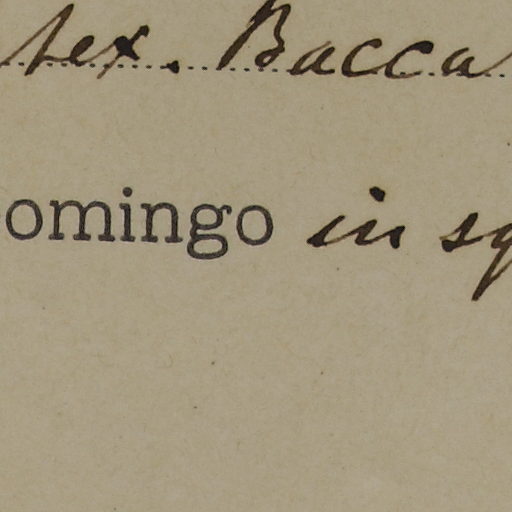 tex. Bacca
omingo in sq